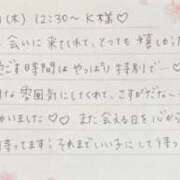 (木) 12:30〜 K様♡
会いに来てくれて、とっても嬉しか
過ごす時間はやっぱり特別で…♡
雰囲気にしてくれて、こすがだな〜
かいました♡♡ また会える日を心か
待ってます!それまでいい子にして待っ